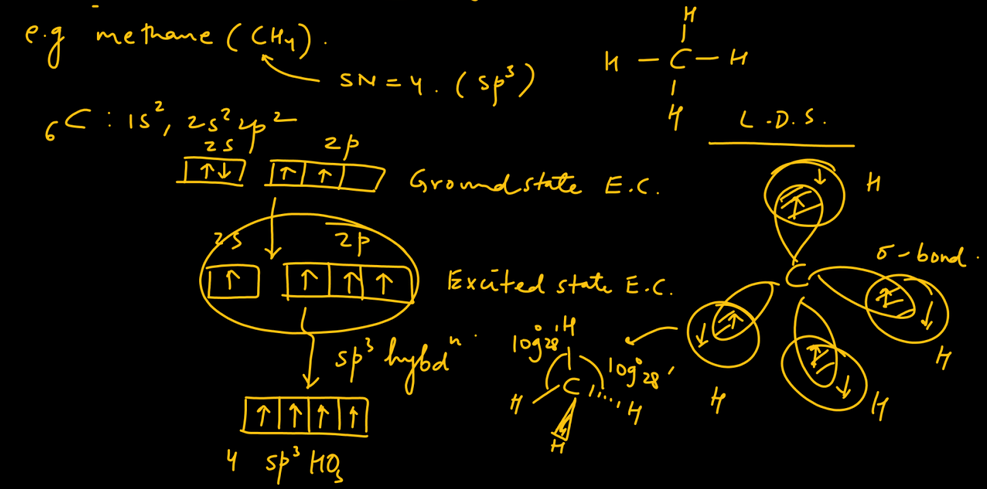 e.g methane (CH4).
SN = 4. (sp³)
H
H — C — H
H
L.D.S.
₆C : 1s², 2s² 2p²
2s 2p
↑↓ ↑ ↑ Ground state E.C.
2s 2p
↑ ↑ ↑ ↑ Excited state E.C.
sp³ hybdⁿ.
↑ ↑ ↑ ↑
4 sp³ HOs
109°28' H
109°28'
C
H H
H
H
C σ-bond.
H
H H